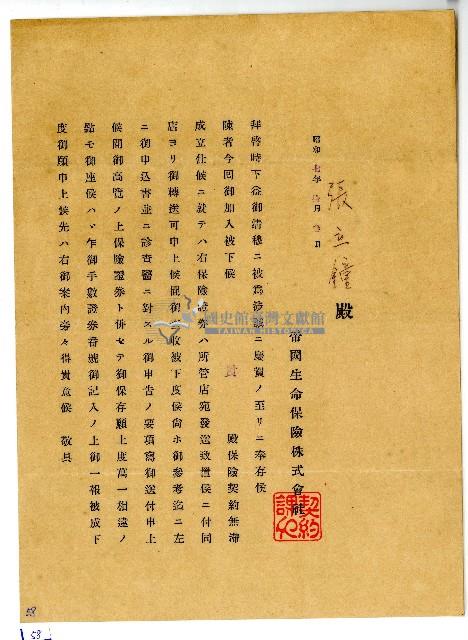 昭和七年 月 日
張立 殿
帝國生命保險株式會社
契約課之印
拜啓時下益御淸穆ニ被爲涉誠ニ慶賀ノ至リニ奉存候
陳者今回御加入被下候 貴 殿保險契約無滯
成立仕候ニ就テハ右保險證券ハ所管店宛發送致置候ニ付同
店ヨリ御轉送可申上候間御 收被下度候尙ホ御參考迄ニ左
ニ御申込書並ニ診査醫ニ對スル御申告ノ要項寫御送付申上
候間御高覽ノ上保險證券ト併セテ御保存願上度萬一相違ノ
點モ御座候ハヾ乍御手數證券番號御記入ノ上御一報被成下
度御願申上候先ハ右御案內旁々得貴意候 敬具
國史館臺灣文獻館
TAIWAN HISTORICA
58
58